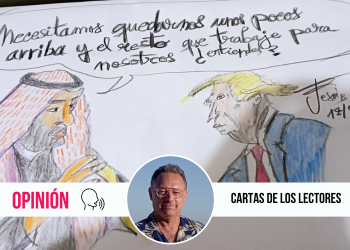 Necesitamos quedarnos unos pocos
arriba y el resto que trabaje para
nosotros ¿entiendes?
OPINIÓN
CARTAS DE LOS LECTORES